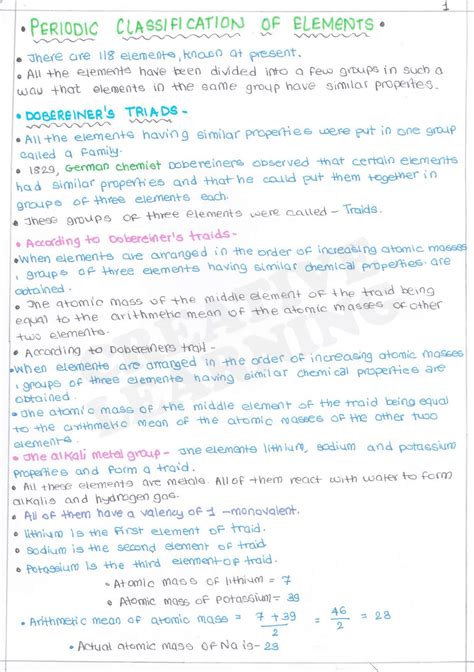 1
• PERIODIC CLASSIFICATION OF ELEMENTS •
• There are 118 elements, known at present.
• All the elements have been divided into a few groups in such a
way that elements in the same group have similar properties.
• DOBEREINER'S TRIADS -
• All the elements having similar properties were put in one group
called a family.
• 1829, German chemist Dobereiners observed that certain elements
had similar properties and that he could put them together in
groups of three elements each.
• These groups of three elements were called - Traids.
• According to Dobereiner's traids-
• When elements are arranged in the order of increasing atomic masses
, groups of three elements having similar chemical properties are
obtained.
• The atomic mass of the middle element of the traid being
equal to the arithmetic mean of the atomic masses of other
two elements.
• According to Dobereiners trail -
• When elements are arranged in the order of increasing atomic masses
, groups of three elements having similar chemical properties are
obtained.
• The atomic mass of the middle element of the traid being equal
to the arithmetic mean of the atomic masses of the other two
elements.
• The alkali metal group - The elements lithium, sodium and potassium
properties and form a traid.
• All these elements are metals. All of them react with water to form
alkalis and hydrogen gas.
• All of them have a valency of 1 - monovalent.
• lithium is the first element of traid.
• sodium is the second element of traid
• Potassium is the third element of traid.
• Atomic mass of lithium = 7
• Atomic mass of potassium = 39
• Arithmetic mean of atomic mass = 7 + 39 / 2 = 46 / 2 = 23
• Actual atomic mass of Na is - 23
CREATIVE
LEARNING